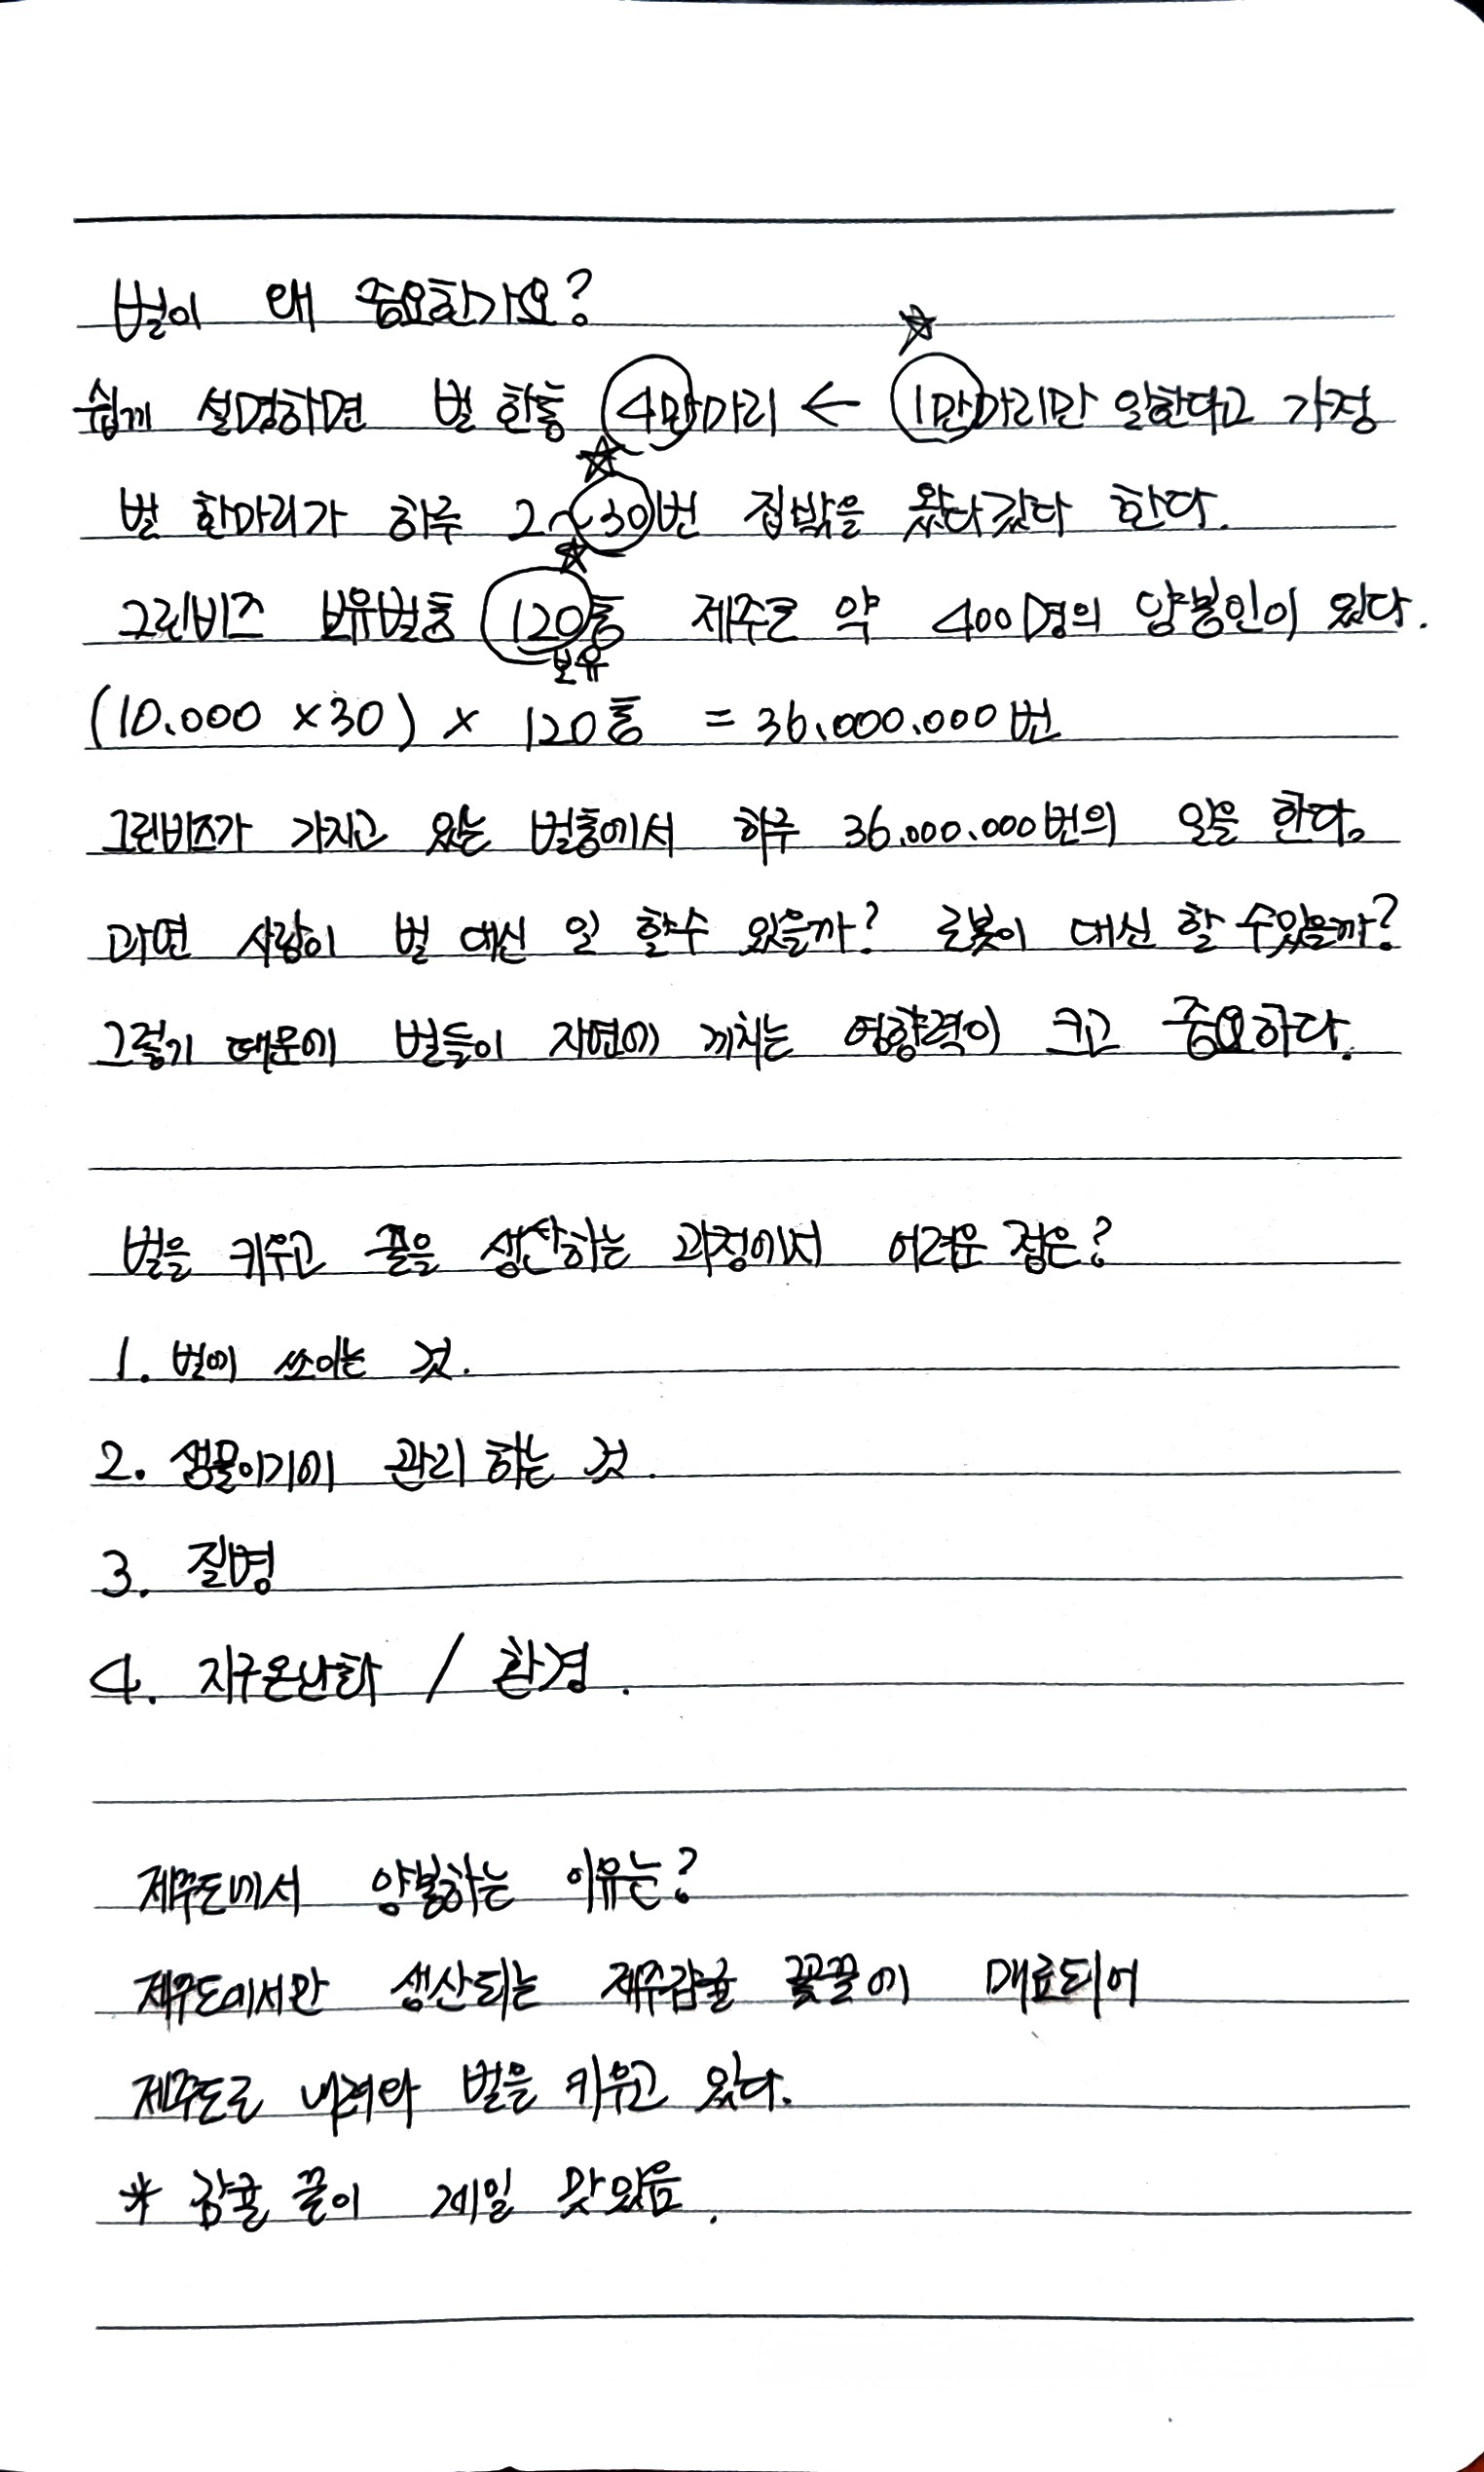 벌이 왜 중요한가요?
쉽게 설명하면 벌 한통 4만마리 ← 1만마리만 일한다고 가정
벌 한마리가 하루 2~30번 집밖을 왔다갔다 한다.
그린비즈 보유벌통 120통 제주로 약 400명의 양봉인이 있다.
보유
(10.000 × 30) × 120통 = 36.000.000번
그린비즈가 가지고 있는 벌통에서 하루 36.000.000번의 일을 한다.
과연 사람이 벌 대신 일 할수 있을까? 로봇이 대신 할 수있을까?
그렇기 때문에 벌들이 자연에 끼치는 영향력이 크고 중요하다.
벌을 키우고 꿀을 생산하는 과정에서 어려운 점은?
1. 벌에 쏘이는 것.
2. 생물이기에 관리 하는 것.
3. 질병
4. 지구온난화 / 환경.
제주도에서 양봉하는 이유는?
제주도에서만 생산되는 제주감귤 꽃꿀에 매료되어
제주도로 내려와 벌을 키우고 있다.
* 감귤 꿀이 제일 맛있음.